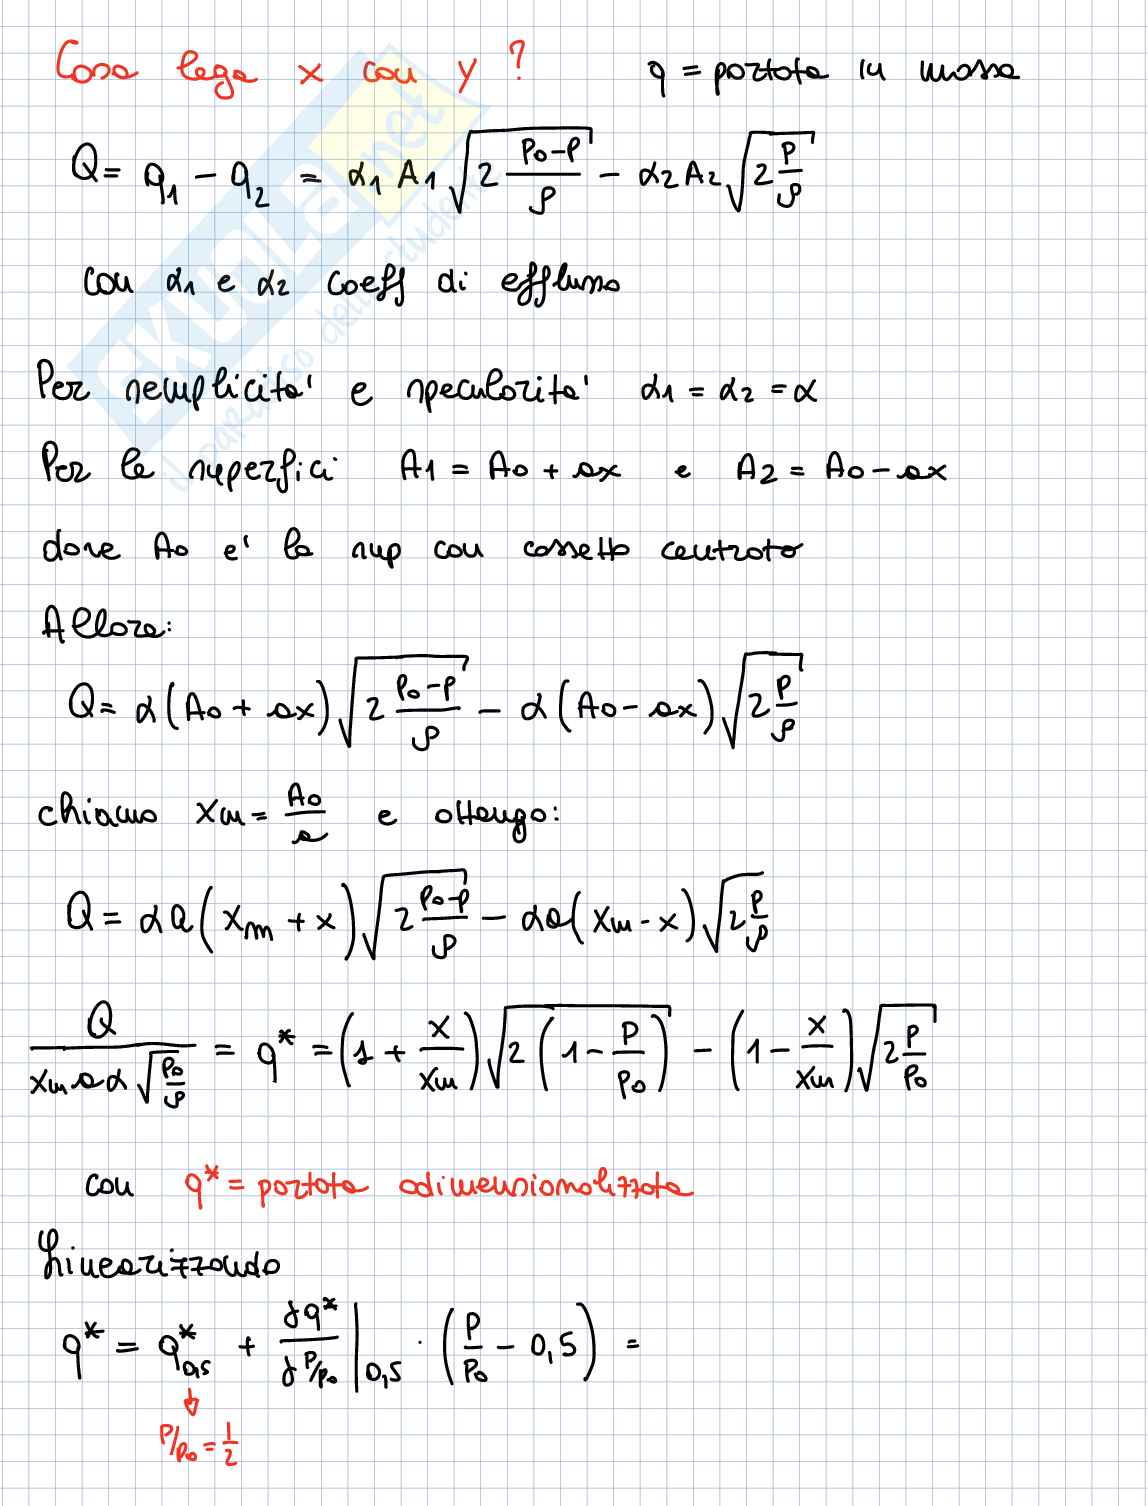 Cosa lega x con y ? q = portata in massa
Q = q₁ - q₂ = α₁ A₁ √(2 (P₀-P)/ρ) - α₂ A₂ √(2 P/ρ)
con α₁ e α₂ coeff di efflusso
Per semplicita' e specularita' α₁ = α₂ = α
Per le superfici A₁ = A₀ + ax e A₂ = A₀ - ax
dove A₀ e' la sup con cassetto centrato
Allora:
Q = α (A₀ + ax) √(2 (P₀-P)/ρ) - α (A₀ - ax) √(2 P/ρ)
chiamo xm = A₀/a e ottengo:
Q = αa (xm + x) √(2 (P₀-P)/ρ) - αa (xm - x) √(2 P/ρ)
Q/(xm a α √(P₀/ρ)) = q* = (1 + x/xm) √(2 (1 - P/P₀)) - (1 - x/xm) √(2 P/P₀)
con q* = portata adimensionalizzata
Linearizzando
q* = q*₀,₅ + ∂q*/∂P/P₀ |₀,₅ · (P/P₀ - 0,5) =
P/P₀ = 1/2
SKUOLA.net
il paradiso dello studente